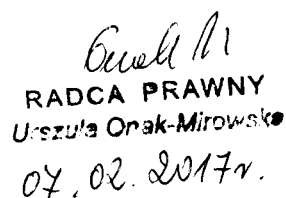 RADCA PRAWNY
Urszula Onak-Mirowska
07.02.2017r.